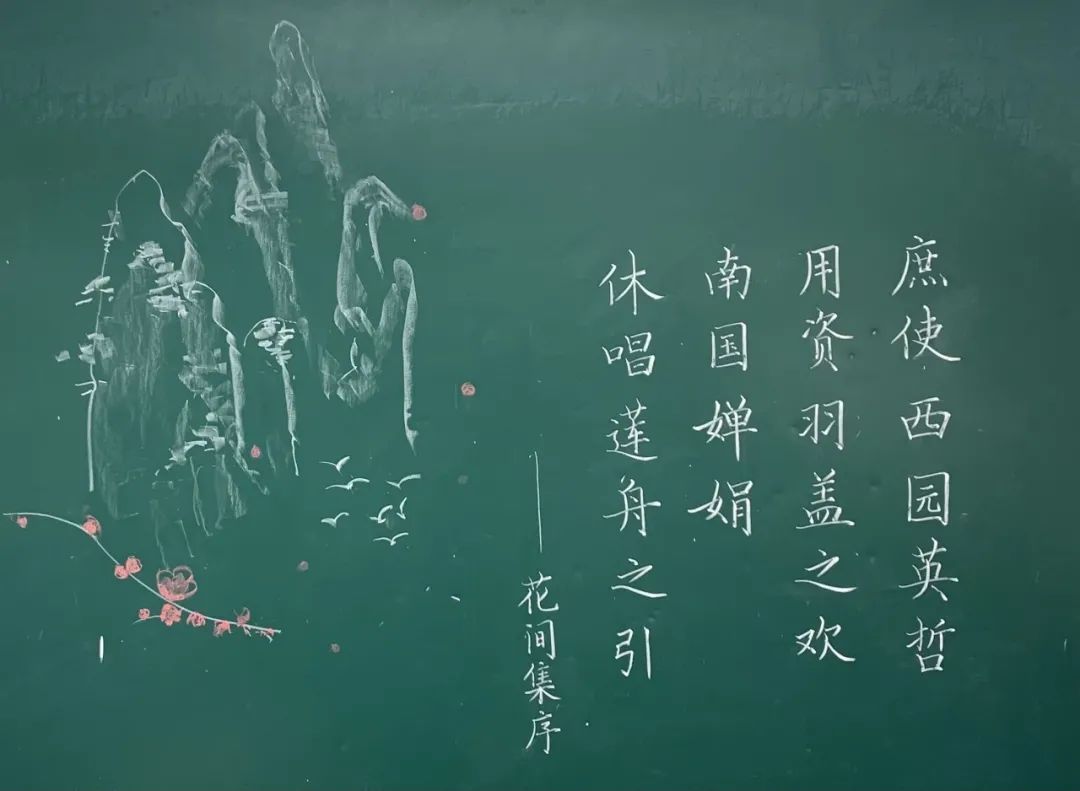 庶使西园英哲
用资羽盖之欢
南国婵娟
休唱莲舟之引
——花间集序